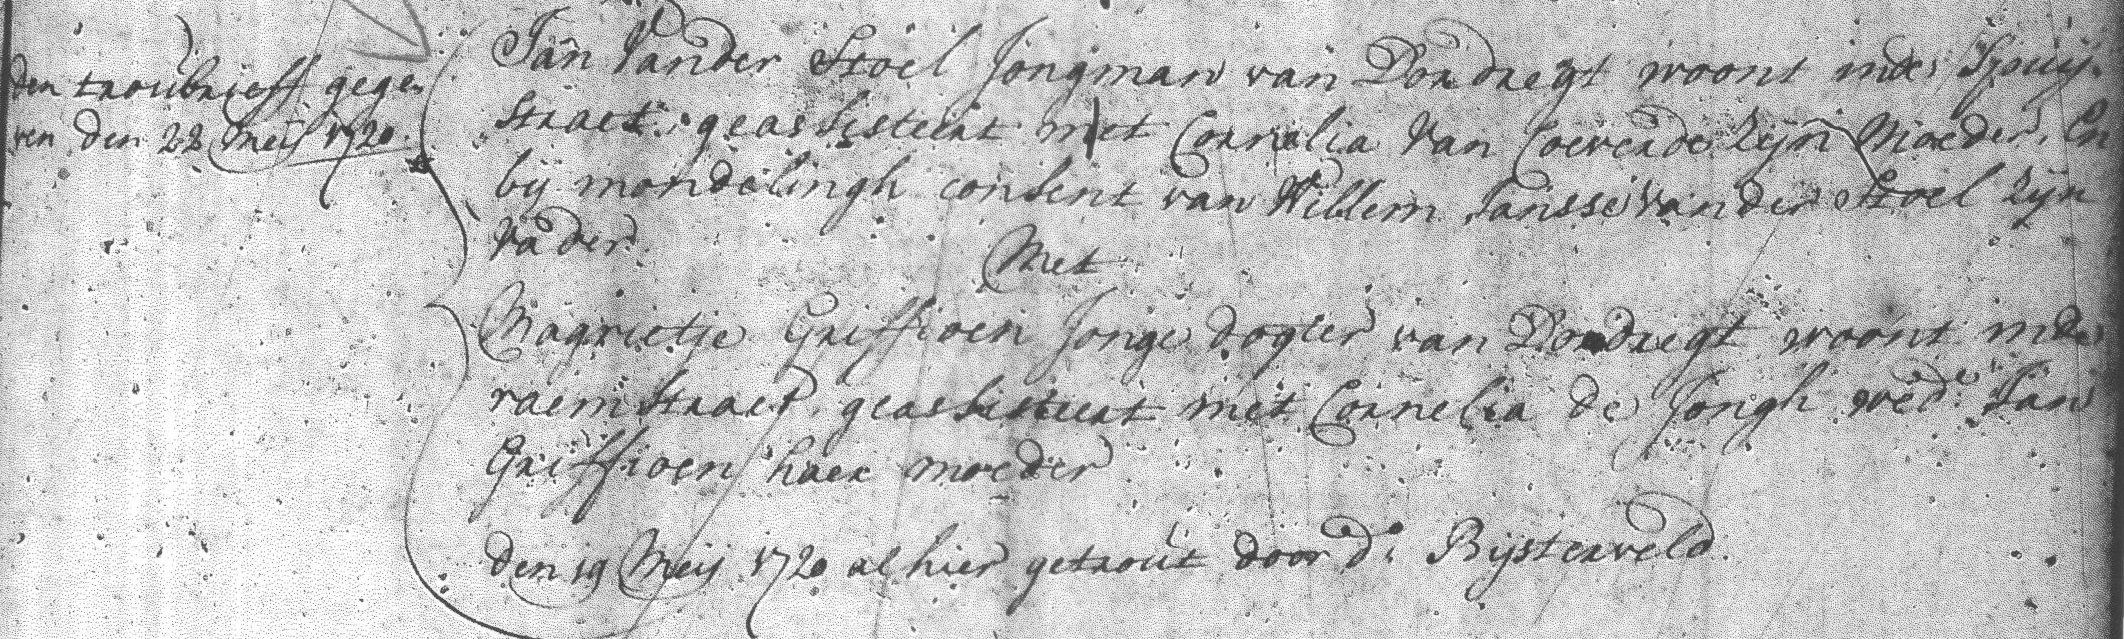 den troubrieff gege,
ven den 22 Meij 1720
Jan Vander Stoel Jongman van Dordregt woont inde Spuij,
straet, geassisteert met Cornelia Van Coeverde Zijn Moeder, En
bij mondelingh consent van Willem Jansse vander Stoel Zijn
Vader
Met
Magrietje Griffioen Jonge dogter van Dordregt woont inde
raemstraet, geassisteert met Cornelia de Jongh wed.e Jan
Griffioen haer moeder
den 19 Meij 1720 alhier getrout door d: Bijsterveld.